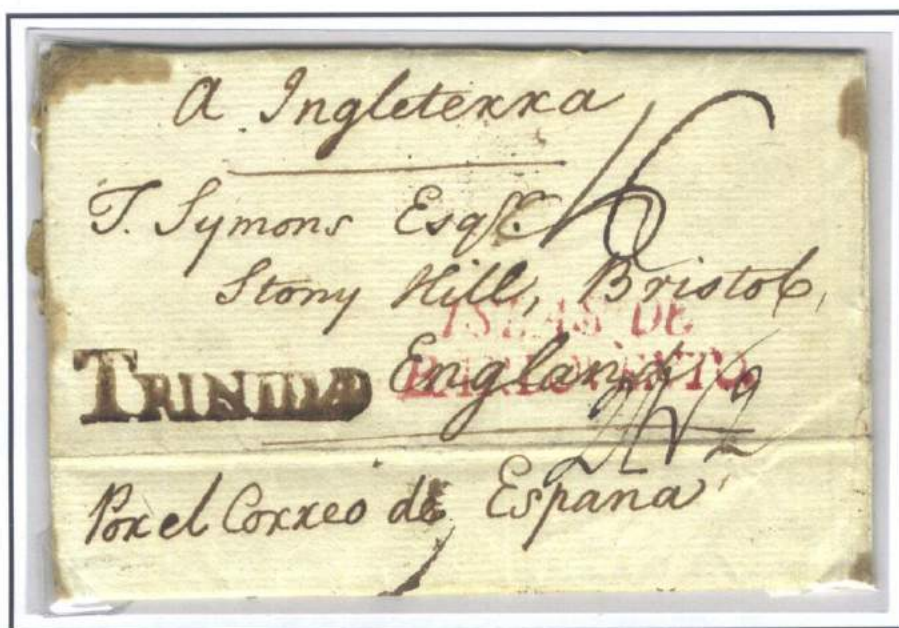 A Ingleterra
6
T. Symons Esqr.
Stony Hill, Bristol,
ISLAS DE
BARLOVENTO
England
TRINIDAD
2N2
Por el Correo de España